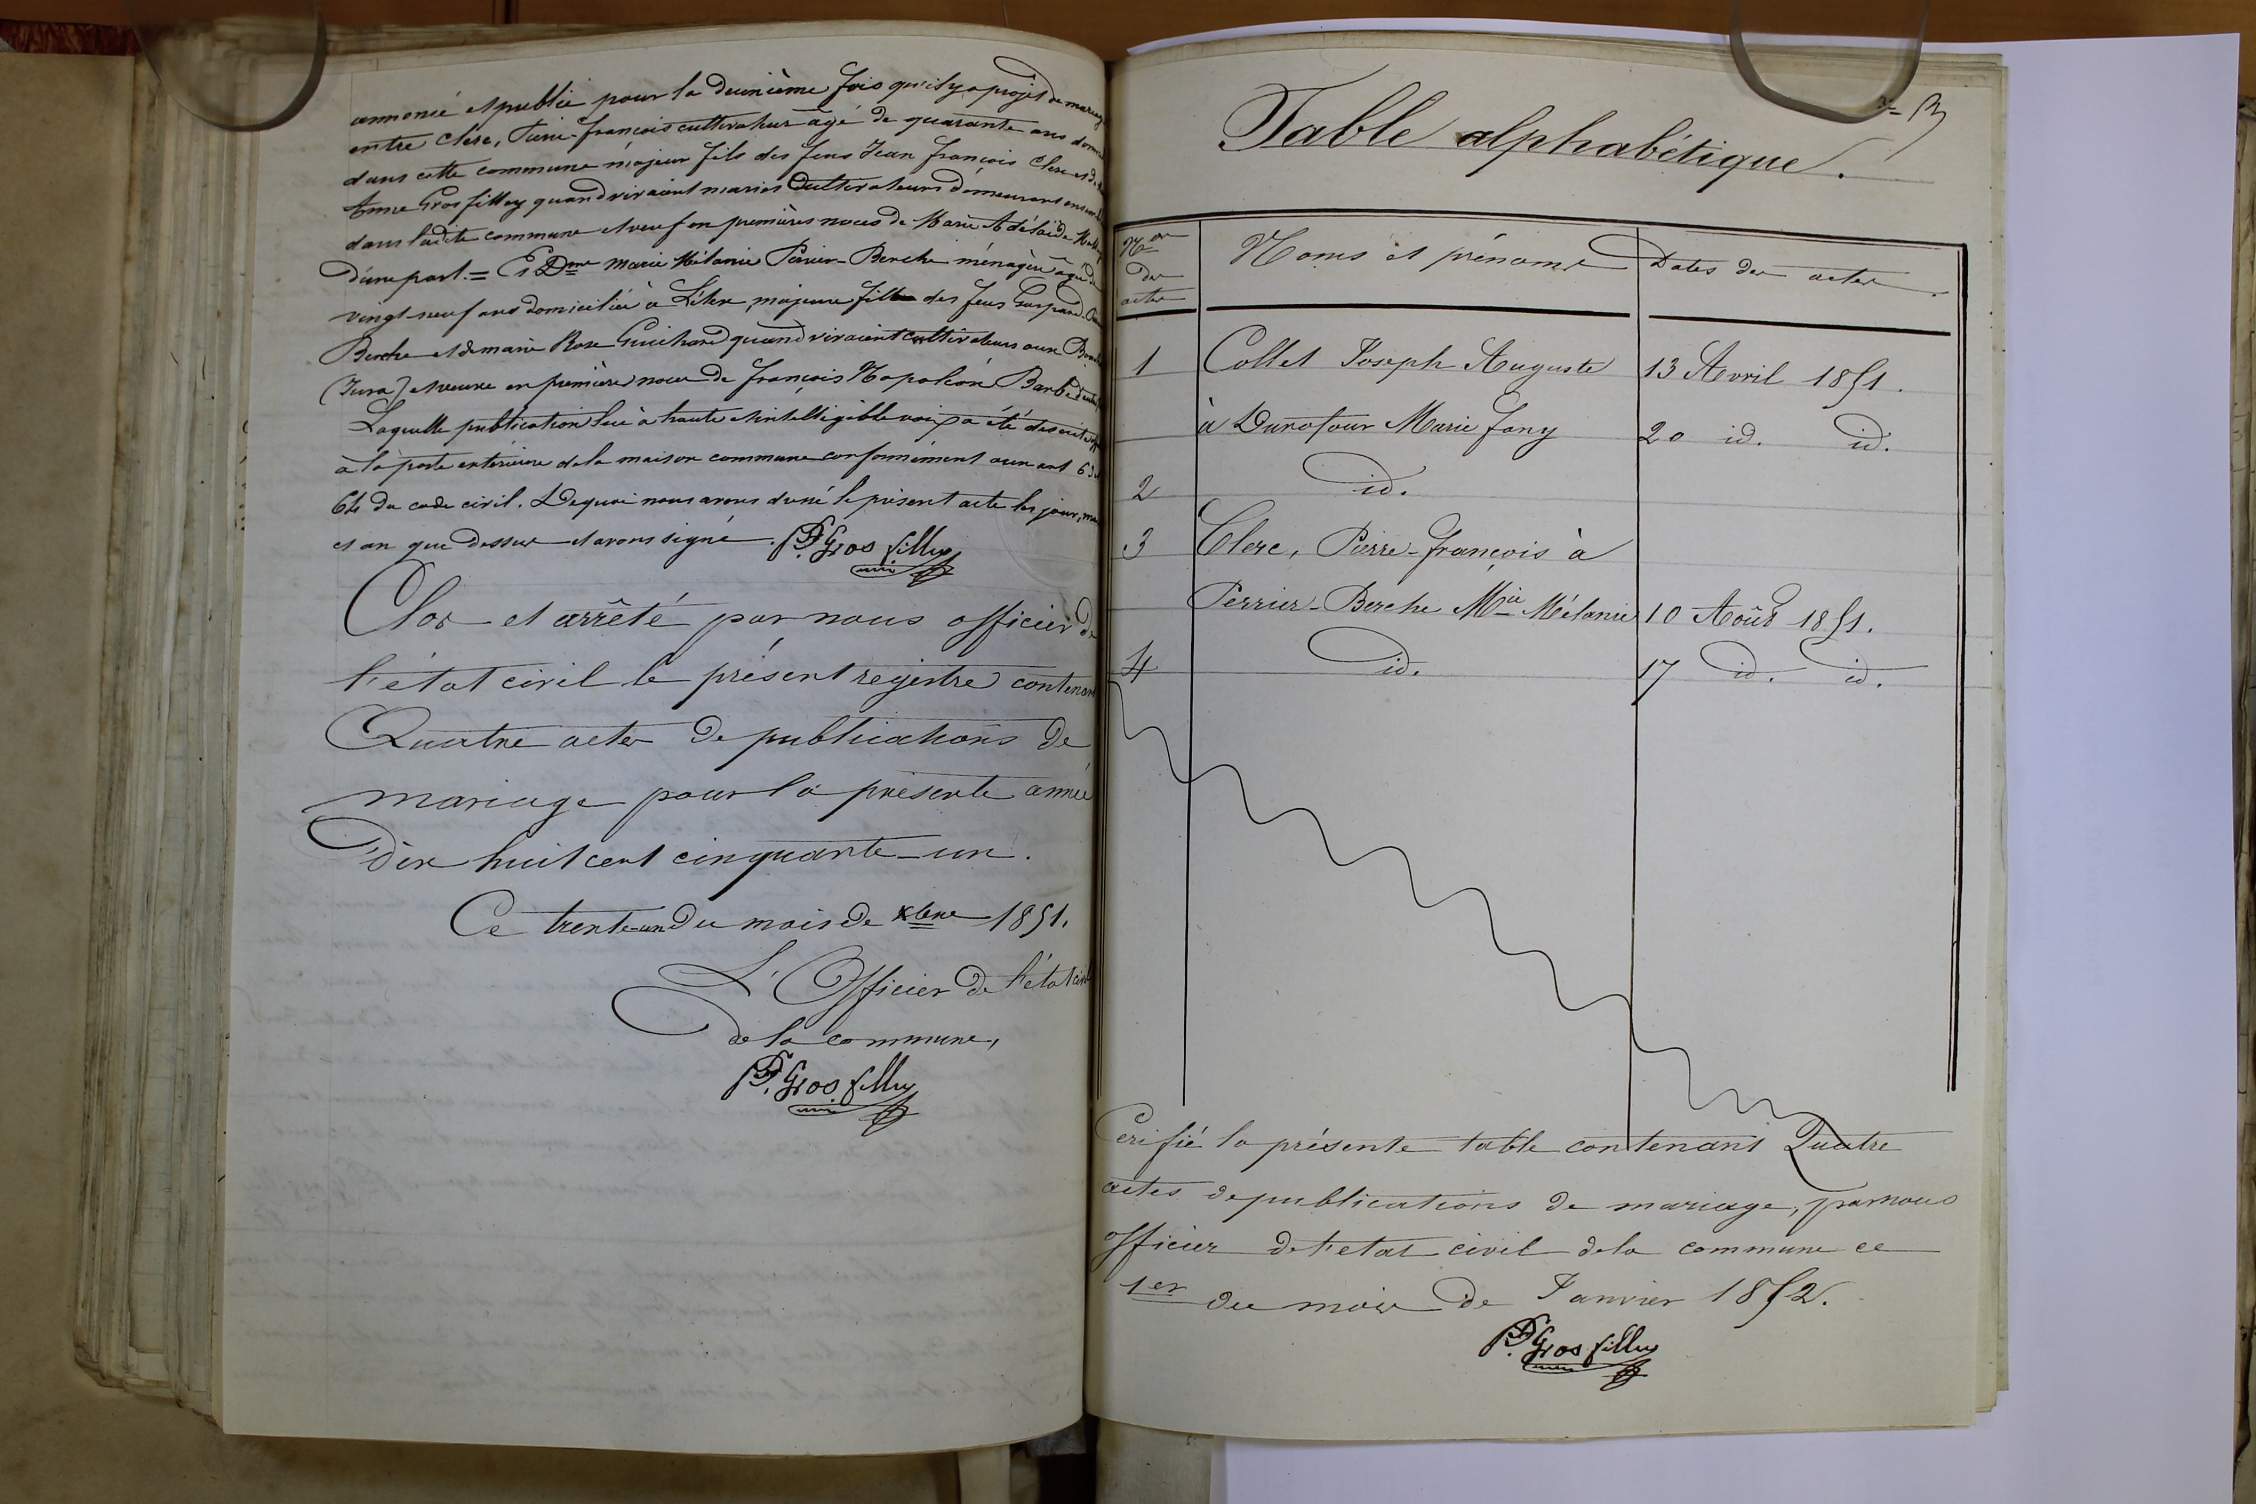 annoncé et publié pour la deuxième fois qu'il y a projet de mariage
entre Clerc, Pierre-françois cultivateur âgé de quarante ans
dans cette commune majeur fils des feus Jean françois Clerc et de
Anne Grosfilley quand vivaient mariés Cultivateurs demeurant
dans ladite commune et veuf en premières noces de Marie Adélaïde
d'une part. = Et Dme Marie Mélanie Perrier-Berche ménagère âgée de
vingt-neuf ans domiciliée à majeure fille des feus Gaspard
Berche et de marie Rose Guichard quand vivaient cultivateurs aux
(Jura) et veuve en première noces de françois Napoléon
Laquelle publication lue à haute et intelligible voix a été
à la porte extérieure de la maison commune conformément aux art 63 et
64 du code civil. De quoi nous avons dressé le présent acte les jour, mois
et an que dessus et avons signé. P. Gros filley
Clos et arrêté par nous officier de
l'état civil le présent regestre contenant
Quatre actes de publications de
mariage pour la présente année
dix huit cent cinquante-un.
Ce trente-un du mois de Xbre 1851.
L'Officier de l'état civil
de la commune,
P. Gros filley
Table alphabétique.
Nos
des
actes
Noms et prénoms
Dates des actes.
1 Collet Joseph Auguste 13 Avril 1851.
à Durafour Marie fany 20 id. id.
2 id.
3 Clerc, Pierre-françois à
Perrier-Berche Mie Mélanie 10 Août 1851.
4 id. 17 id. id.
Cerifié la présente table contenant Quatre
actes de publications de mariage, par nous
officier de l'etat civil de la commune ce
1er du mois de Janvier 1852.
P. Gros filley